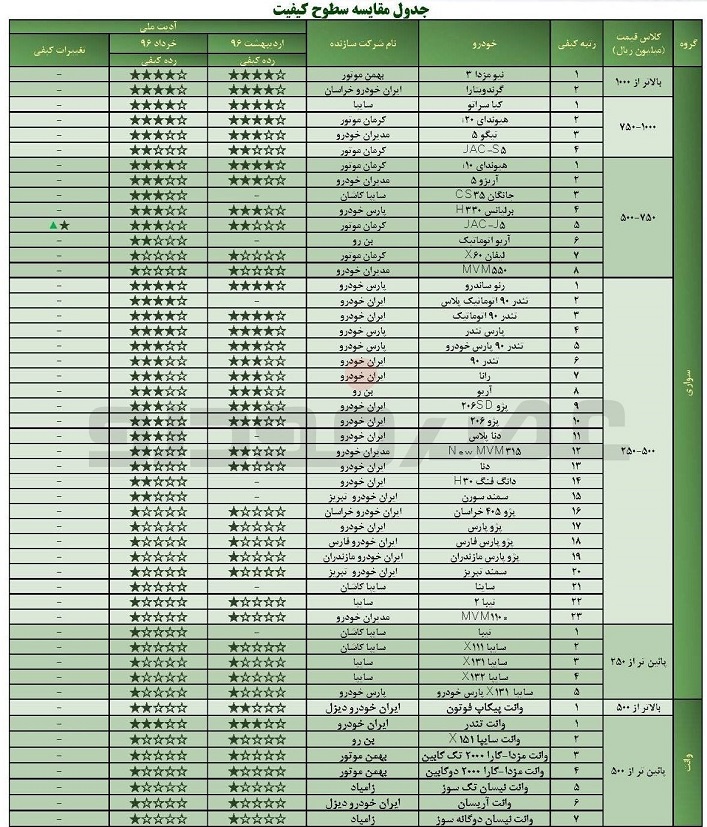 جدول مقایسه سطوح کیفیت
گروه کلاس قیمت (میلیون ریال) رتبه کیفی خودرو نام شرکت سازنده آدیت ملی
اردیبهشت ۹۶ خرداد ۹۶ تغییرات کیفی
رده کیفی رده کیفی
سواری
بالاتر از ۱۰۰۰
۱ نیو مزدا ۳ بهمن موتور ★★★★☆ ★★★★☆ -
۲ گرندویتارا ایران خودرو خراسان ★★★★☆ ★★★★☆ -
۷۵۰-۱۰۰۰
۱ کیا سراتو سایپا ★★★★☆ ★★★★☆ -
۲ هیوندای i۲۰ کرمان موتور ★★★★☆ ★★★★☆ -
۳ تیگو ۵ مدیران خودرو ★★★☆☆ ★★★☆☆ -
۴ JAC-S۵ کرمان موتور ★★☆☆☆ ★★☆☆☆ -
۵۰۰-۷۵۰
۱ هیوندای i۱۰ کرمان موتور ★★★★☆ ★★★★☆ -
۲ آریزو ۵ مدیران خودرو ★★★☆☆ ★★★☆☆ -
۳ چانگان CS۳۵ سایپا کاشان - ★★★☆☆ -
۴ برلیانس H۳۳۰ پارس خودرو ★★★☆☆ ★★★☆☆ -
۵ JAC-J۵ کرمان موتور ★★☆☆☆ ★★★☆☆ ★▲
۶ آریو اتوماتیک پن رو - ★★☆☆☆ -
۷ لیفان X۶۰ کرمان موتور ★☆☆☆☆ ★☆☆☆☆ -
۸ MVM۵۵۰ مدیران خودرو ★☆☆☆☆ -
۲۵۰-۵۰۰
۱ رنو ساندرو پارس خودرو ★★★★☆ ★★★★☆ -
۲ تندر ۹۰ اتوماتیک پلاس ایران خودرو - ★★★★☆ -
۳ تندر ۹۰ اتوماتیک ایران خودرو ★★★★☆ ★★★★☆ -
۴ پارس تندر پارس خودرو ★★★★☆ ★★★★☆ -
۵ تندر ۹۰ پارس خودرو پارس خودرو ★★★☆☆ ★★★☆☆ -
۶ تندر ۹۰ ایران خودرو ★★★☆☆ ★★★☆☆ -
۷ رانا ایران خودرو ★★★☆☆ ★★★☆☆ -
۸ آریو پن رو ★★★☆☆ ★★★☆☆ -
۹ پژو ۲۰۶SD ایران خودرو ★★★☆☆ ★★★☆☆ -
۱۰ پژو ۲۰۶ ایران خودرو ★★★☆☆ ★★★☆☆ -
۱۱ دنا پلاس ایران خودرو - ★★★☆☆ -
۱۲ New MVM۳۱۵ مدیران خودرو ★★☆☆☆ ★★☆☆☆ -
۱۳ دنا ایران خودرو ★★☆☆☆ ★★☆☆☆ -
۱۴ دانگ فنگ H۳۰ ایران خودرو - ★★☆☆☆ -
۱۵ سمند سورن ایران خودرو تبریز - ★★☆☆☆ -
۱۶ پژو ۴۰۵ خراسان ایران خودرو خراسان ★☆☆☆☆ ★☆☆☆☆ -
۱۷ پژو پارس ایران خودرو ★☆☆☆☆ ★☆☆☆☆ -
۱۸ پژو پارس فارس ایران خودرو فارس ★☆☆☆☆ ★☆☆☆☆ -
۱۹ پژو پارس مازندران ایران خودرو مازندران ★☆☆☆☆ ★☆☆☆☆ -
۲۰ سمند تبریز ایران خودرو تبریز ★☆☆☆☆ ★☆☆☆☆ -
۲۱ ساینا سایپا کاشان - ★☆☆☆☆ -
۲۲ تیبا ۲ سایپا ★☆☆☆☆ ★☆☆☆☆ -
۲۳ MVM۱۱۰ مدیران خودرو ★☆☆☆☆ ★☆☆☆☆ -
پائین تر از ۲۵۰
۱ تیبا سایپا کاشان - ★☆☆☆☆ -
۲ سایپا X۱۱۱ سایپا کاشان ★☆☆☆☆ ★☆☆☆☆ -
۳ سایپا X۱۳۱ سایپا ★☆☆☆☆ ★☆☆☆☆ -
۴ سایپا X۱۳۲ سایپا ★☆☆☆☆ ★☆☆☆☆ -
۵ سایپا X۱۳۱ پارس خودرو پارس خودرو ★☆☆☆☆ ★☆☆☆☆ -
وانت
بالاتر از ۵۰۰
۱ وانت پیکاپ فوتون ایران خودرو دیزل ★★☆☆☆ ★★☆☆☆ -
پائین تر از ۵۰۰
۱ وانت تندر ایران خودرو ★★★☆☆ ★★★☆☆ -
۲ وانت سایپا X۱۵۱ پن رو ★☆☆☆☆ ★☆☆☆☆ -
۳ وانت مزدا-کارا ۲۰۰۰ تک کابین بهمن موتور ★☆☆☆☆ ★☆☆☆☆ -
۴ وانت مزدا-کارا ۲۰۰۰ دوکابین بهمن موتور ★☆☆☆☆ ★☆☆☆☆ -
۵ وانت نیسان تک سوز زامیاد ★☆☆☆☆ ★☆☆☆☆ -
۶ وانت آریسان ایران خودرو دیزل ★☆☆☆☆ ★☆☆☆☆ -
۷ وانت نیسان دوگانه سوز زامیاد ★☆☆☆☆ ★☆☆☆☆ -